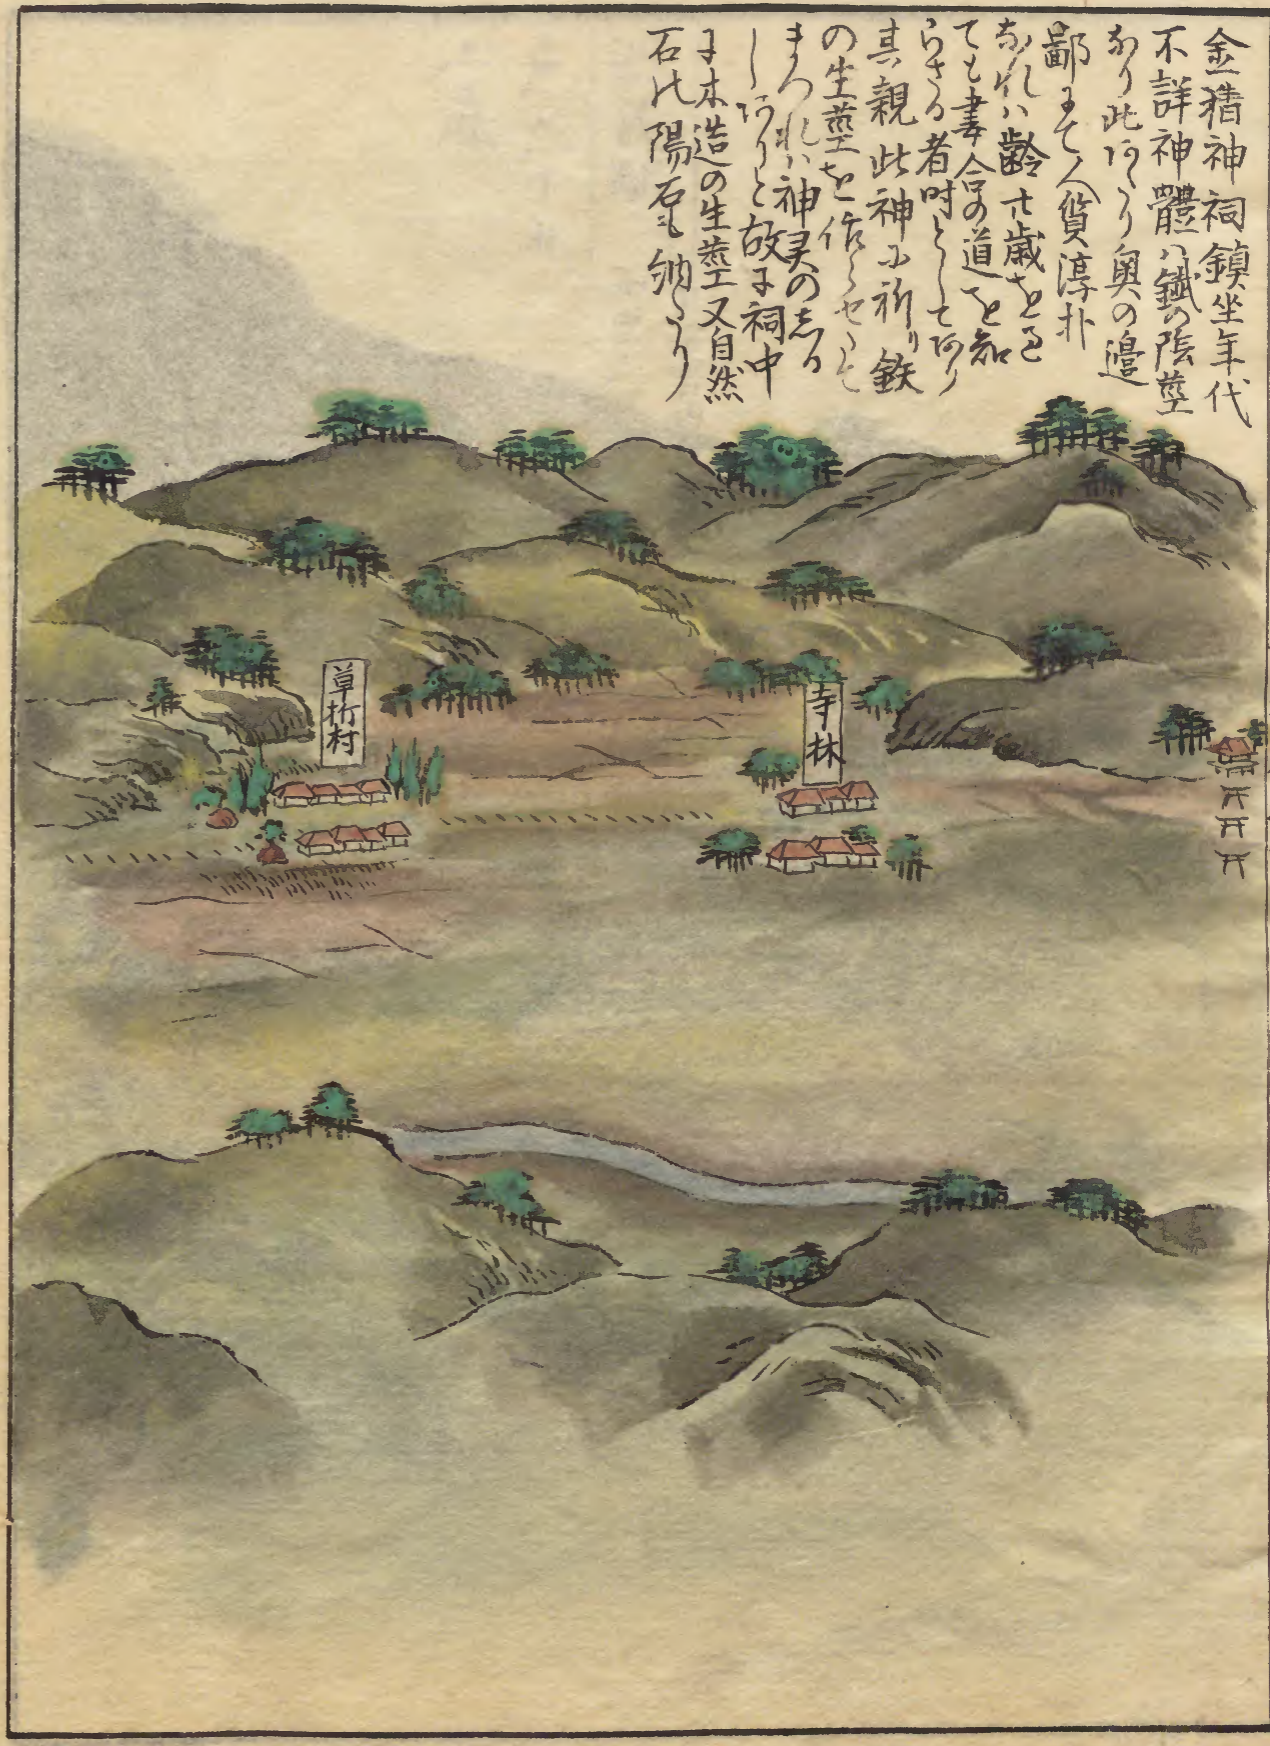 金精神祠鎮坐年代
不詳神體ハ鐵の陰莖
なり此辺より奥の邉
鄙にて人質淳朴
なれハ齢廿歳を過
ても妻合の道を知
らさる者時としてあり
其親此神に祈り鉄
の生莖を作らせて
まつれハ神灵のしる
しありと故に祠中
に木造の生莖又自然
石の陽石も納めり
寺林
草桁村